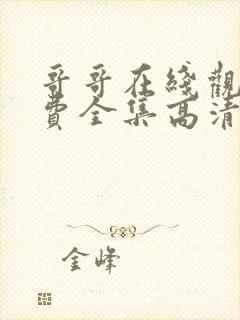 哥哥在綫觀
費全集高清
金峰